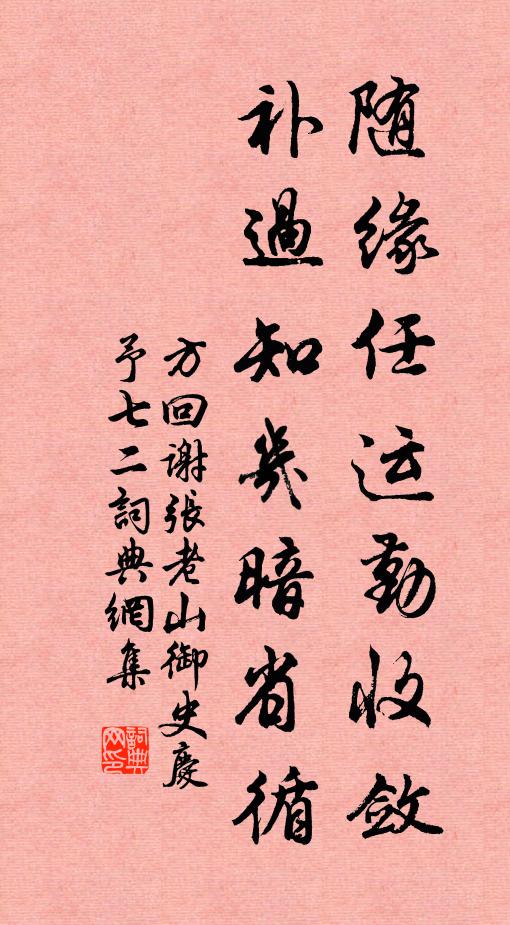 随缘任运勤收敛
补过知几暗省循
方回谢張老山御史慶
予七二詞典網集
詞典
网印